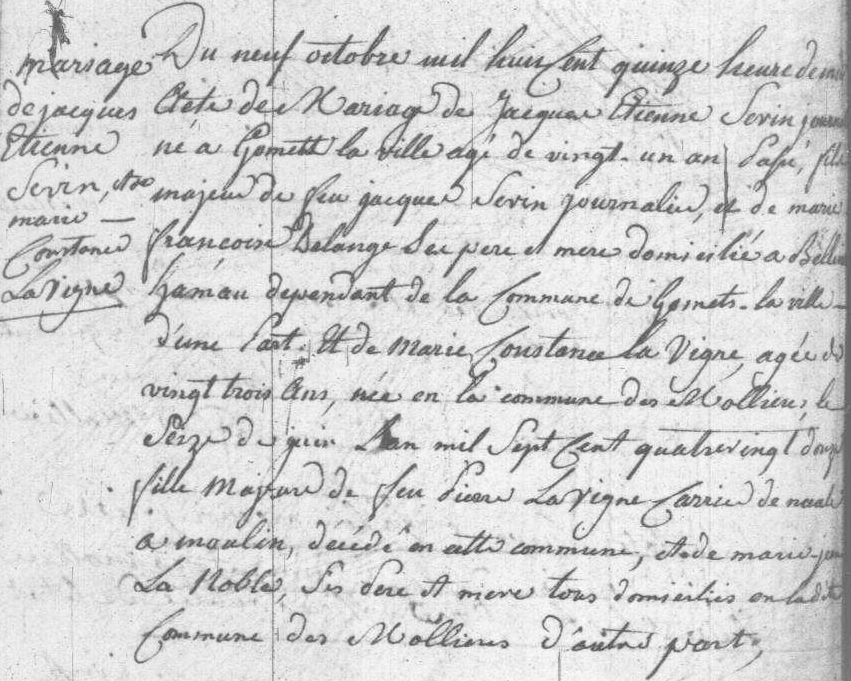 mariage
de jacques
Etienne
Sevin, et de
marie
Constance
La Vigne
Du neuf octobre mil huit Cent quinze heure de
Acte de Mariage de Jacque Etienne Sevin
né a Gometz la ville agé de vingt-un an Passé, fils
majeur de feu jacques Sevin journalier, et de marie
francoise Belange Ses pere et mere domicilié a
hamau dependant de la Commune de Gomets-la ville
d'une Part. Et de Marie Constance la Vigne, agée de
vingt trois Ans, née en la commune des Mollieres, le
Seize de juin Lan mil Sept Cent quatrevingt douze
fille Majeure de feu Pierre La Vigne Carrier de
a moulin, décédé en cette commune, et de marie
La Noble, Ses Pere et mere tous domiciliés en la dite
Commune des Mollieres d'autre part,